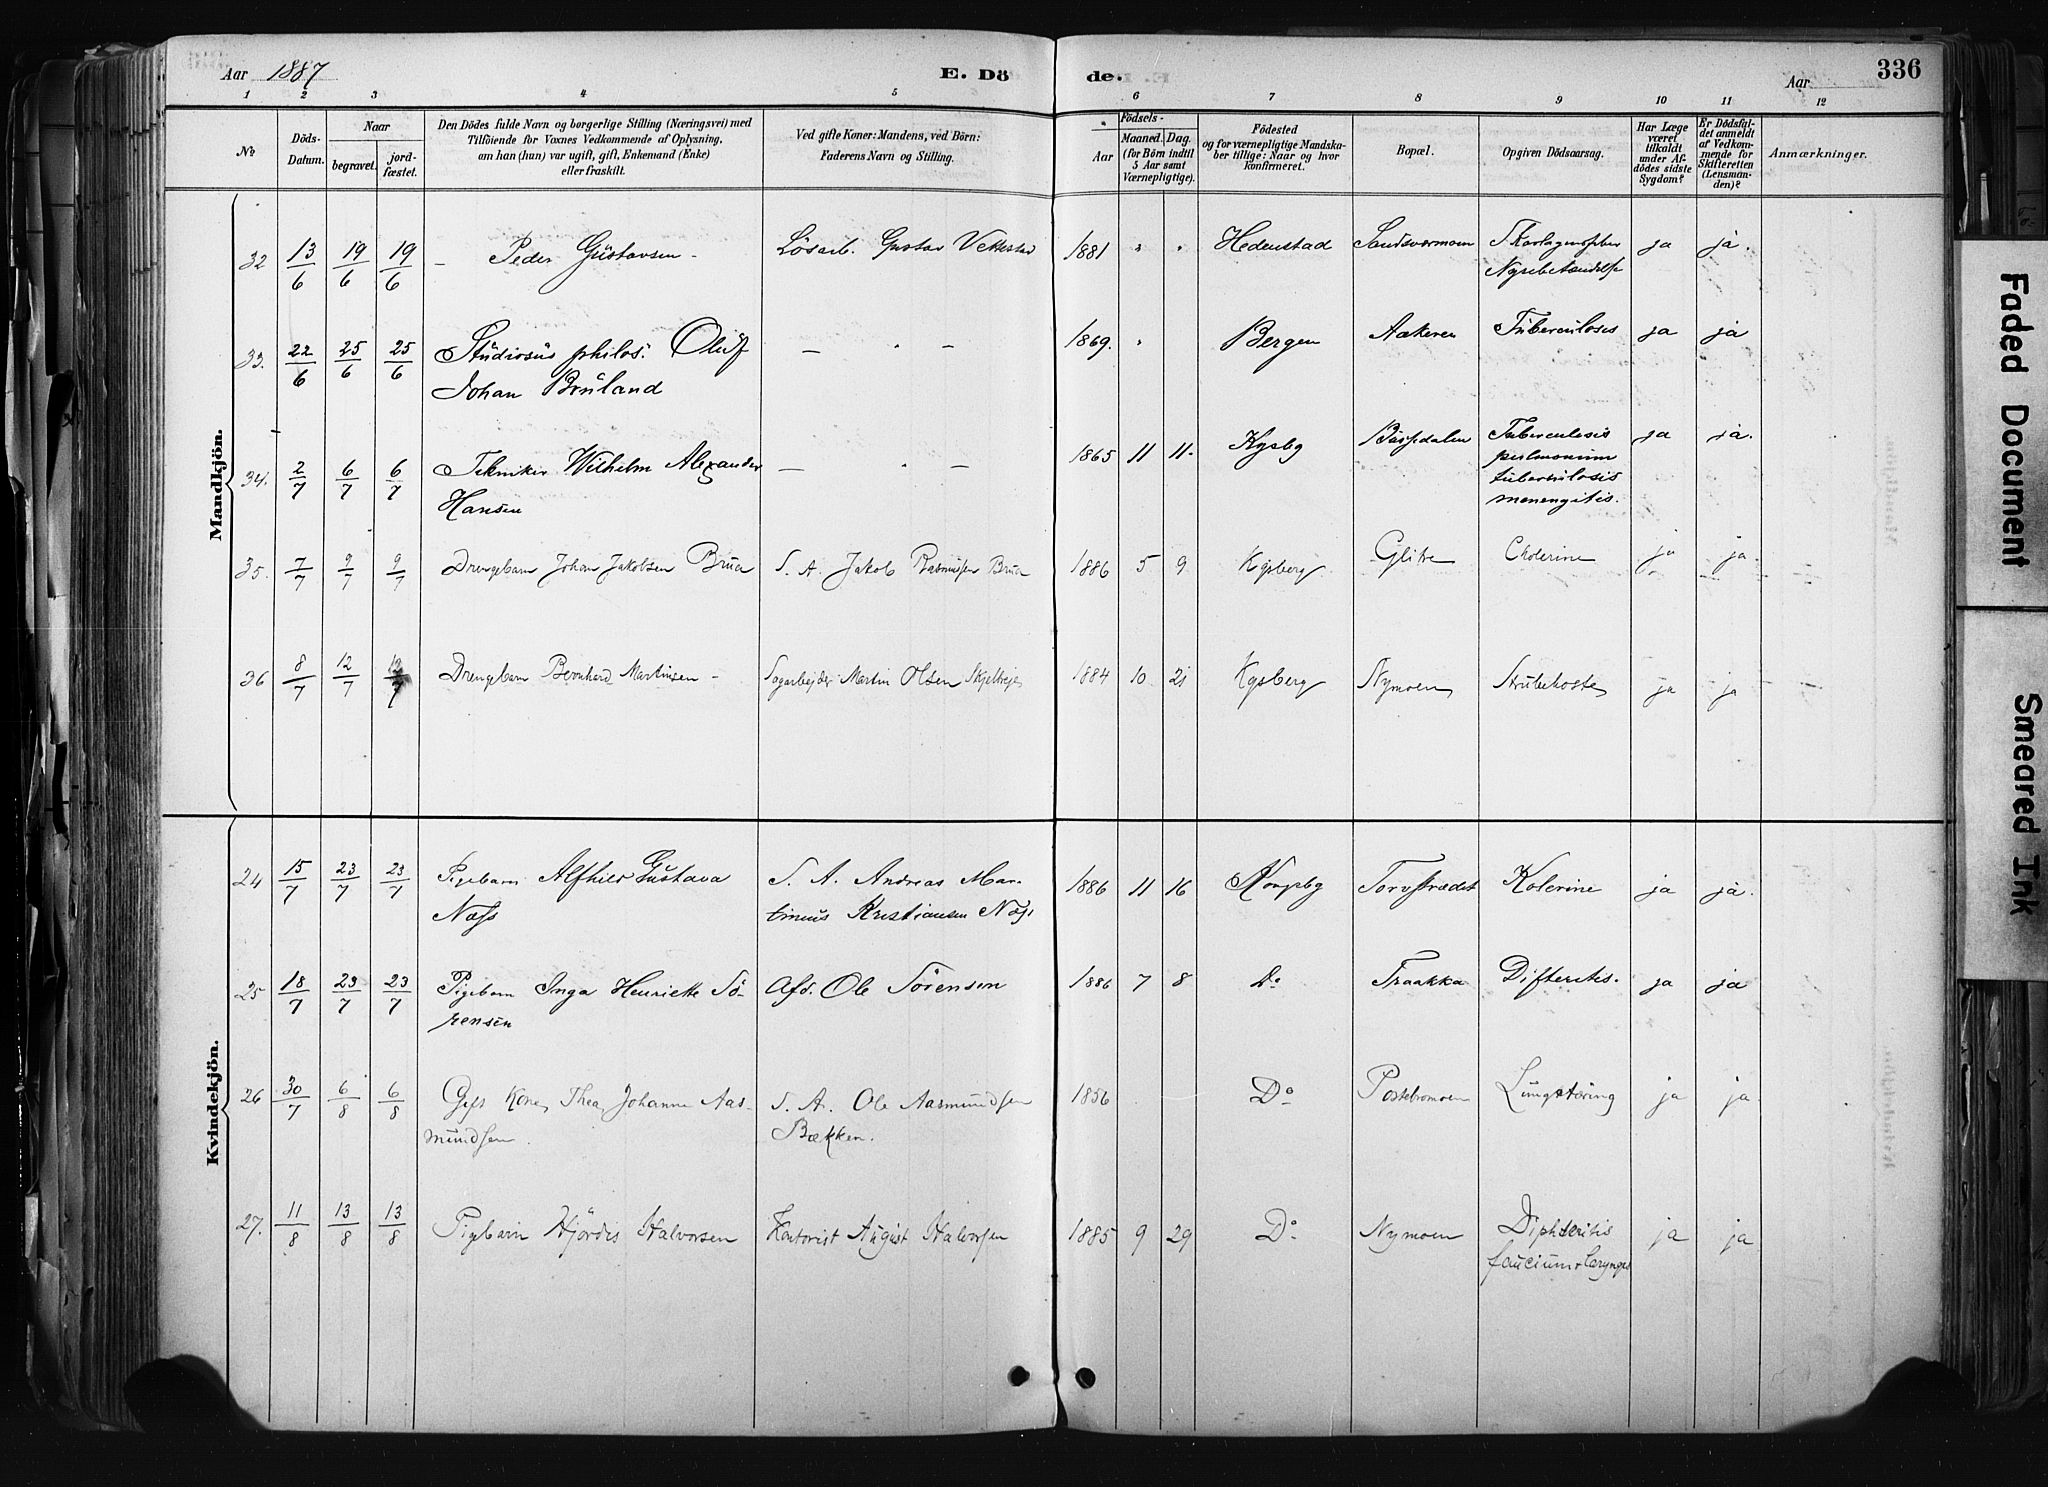 Aar 1887
E. Dö
de.
Aar
336
1 2 3 4 5 6 7 8 9 10 11 12
No
Döds-
Datum.
Naar
begravet.
jord-
fæstet.
Den Dödes fulde Navn og borgerlige Stilling (Næringsvei) med
Tilföiende for Voxnes Vedkommende af Oplysning,
om han (hun) var ugift, gift, Enkemand (Enke)
eller fraskilt.
Ved gifte Koner: Mandens, ved Börn:
Faderens Navn og Stilling.
Födsels-
Aar
Maaned. Dag.
(for Börn indtil
5 Aar samt
Værnepligtige).
Födested
og for værnepligtige Mandska-
ber tillige: Naar og hvor
konfirmeret.
Bopæl.
Opgiven Dödsaarsag.
Har Læge
været
tilkaldt
under Af-
dödes sidste
Sygdom?
Er Dödsfal-
det anmeldt
af Vedkom-
mende for
Skifteretten
(Lensman-
den)?
Anmærkninger.
Mandkjön.
32 13/6 19/6 19/6 – Peder Gustavsen – Lösarb. Gustav Vettestad 1881 " " Hedenstad Sandsværmoen Skarlagensfeber ja ja.
Nyrebetændelse
33. 22/6 25/6 25/6 Studiosus philos. Oluf — " — 1869. " Bergen Aakeren Tuberculosis ja ja
Johan Bruland
34. 2/7 6/7 6/7 Tekniker Wilhelm Alexander — " — 1865 11 11. Kgsbg Tuberculosis ja ja.
Hansen pulmonum
tuberculosis
menengitis.
35. 7/7 9/7 9/7 Drengebarn Johan Jakobsen Brua S. A. Jakob Rasmussen Brua 1886 5 9 Kgsberg Glitre Cholerine ja ja
36 8/7 12/7 12/7 Drengebarn Bernhard Martinsen – Sagarbejder Martin Olsen 1884 10 21 Kgsberg Nymoen Strubehoste ja ja
Kvindekjön.
24 15/7 23/7 23/7 Pigebarn Alfhild Gustava S. A. Andreas Mar- 1886 11 16 Kongsbg Torvstrædet Kolerine ja ja.
Næss tinius Kristiansen Næss
25 18/7 23/7 23/7 Pigebarn Inga Henriette Sö- Afd. Ole Sörensen 1886 7 8 Do Traakka Difteritis. ja ja
rensen
26 30/7 6/8 6/8 Gift Kone Thea Johanne Aas- S. A. Ole Aasmundsen 1856 Do Postebromoen Lungetæring ja ja
mundsen. Bækken.
27. 11/8 13/8 13/8 Pigebarn Hjördis Halvorsen Kontorist August Halvorsen 1885 9 29 Do Nymoen Diphteritis ja ja
faucium & laryngis
Faded Document
Smeared Ink